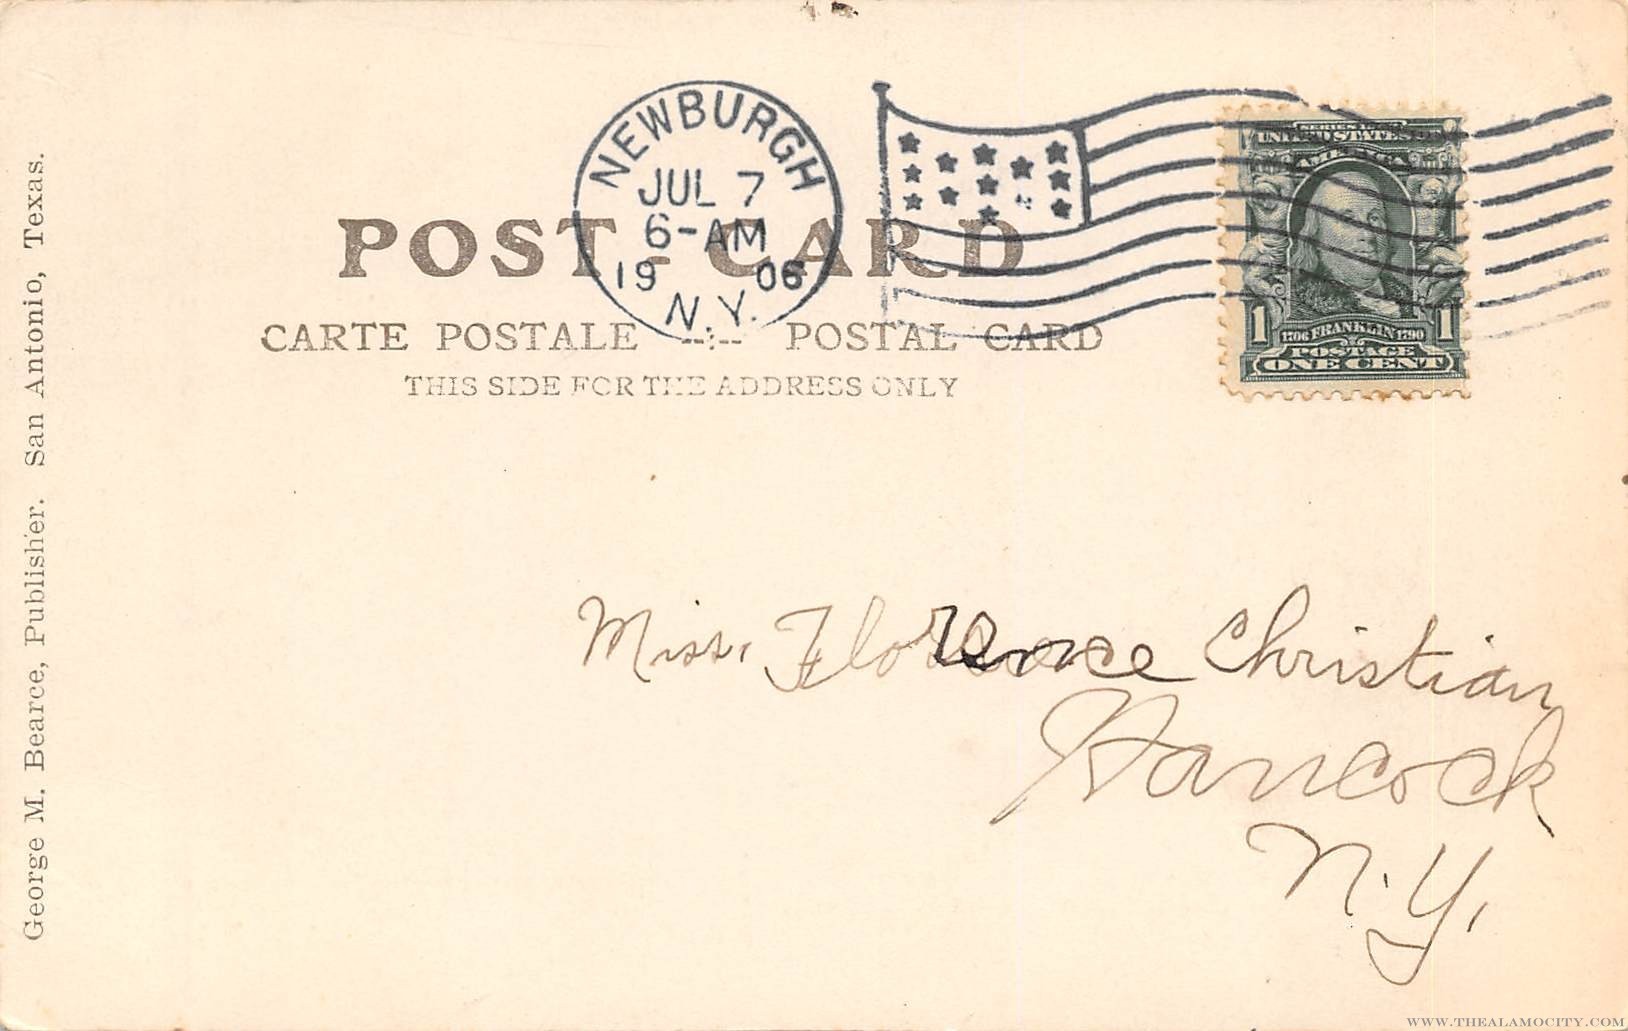 NEWBURGH
JUL 7
6-AM
1906
N.Y.
SERIES
UNITED STATES OF
AMERICA
1 1706 FRANKLIN 1790 1
POSTAGE
ONE CENT
POST-CARD
CARTE POSTALE --:-- POSTAL CARD
THIS SIDE FOR THE ADDRESS ONLY
George M. Bearce, Publisher. San Antonio, Texas.
Miss. Florence Christian
Hancock
N.Y.
WWW.THEALAMOCITY.COM